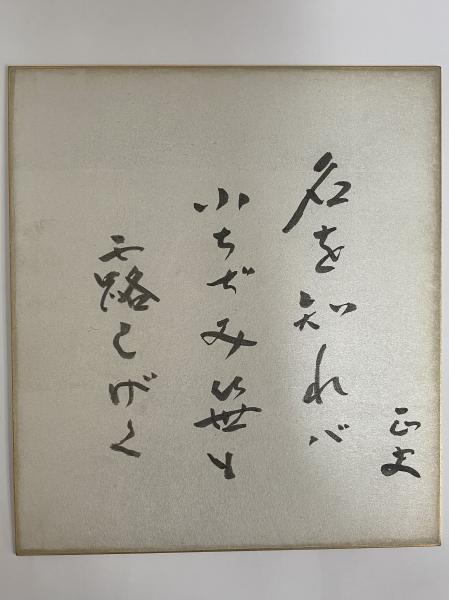 名を知れバ
小ちぢみ笹も
露しげく
正史